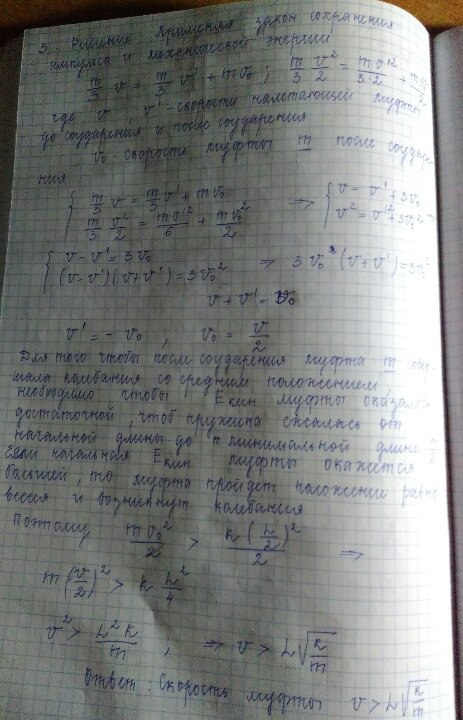 3. Решение Применяя закон сохранения
импульса и механической энергии
m/3 v = m/3 v' + mv₀ ; m/3 v²/2 = mv'²/3·2 + mv₀²/2
где v, v' - скорости налетающей муфты
до соударения и после соударения
v₀ скорость муфты m после соударе-
ния
{ m/3 v = m/3 v' + mv₀ ⇒ { v = v' + 3v₀
{ m/3 v²/2 = mv'²/6 + mv₀²/2 { v² = v'² + 3v₀² ⇒
{ v - v' = 3v₀ ⇒ 3v₀ (v+v') = 3v₀²
{ (v-v')(v+v') = 3v₀²
v + v' = v₀
v' = - v₀ , v₀ = v/2
Для того чтобы после соударения муфта m совер-
шала колебания со средним положением,
необходимо чтобы Eкин муфты оказалась
достаточной, чтоб пружина сжалась от
начальной длины до минимальной длине
Если начальная Eкин муфты окажется
большей, то муфта пройдет положение равно
весия и возникнут колебания
Поэтому mv₀²/2 > k(L/2)²/2 ⇒
m(v/2)² > k L²/4
v² > L²k/m , ⇒ v > L√(k/m)
Ответ: Скорость муфты v > L√(k/m)